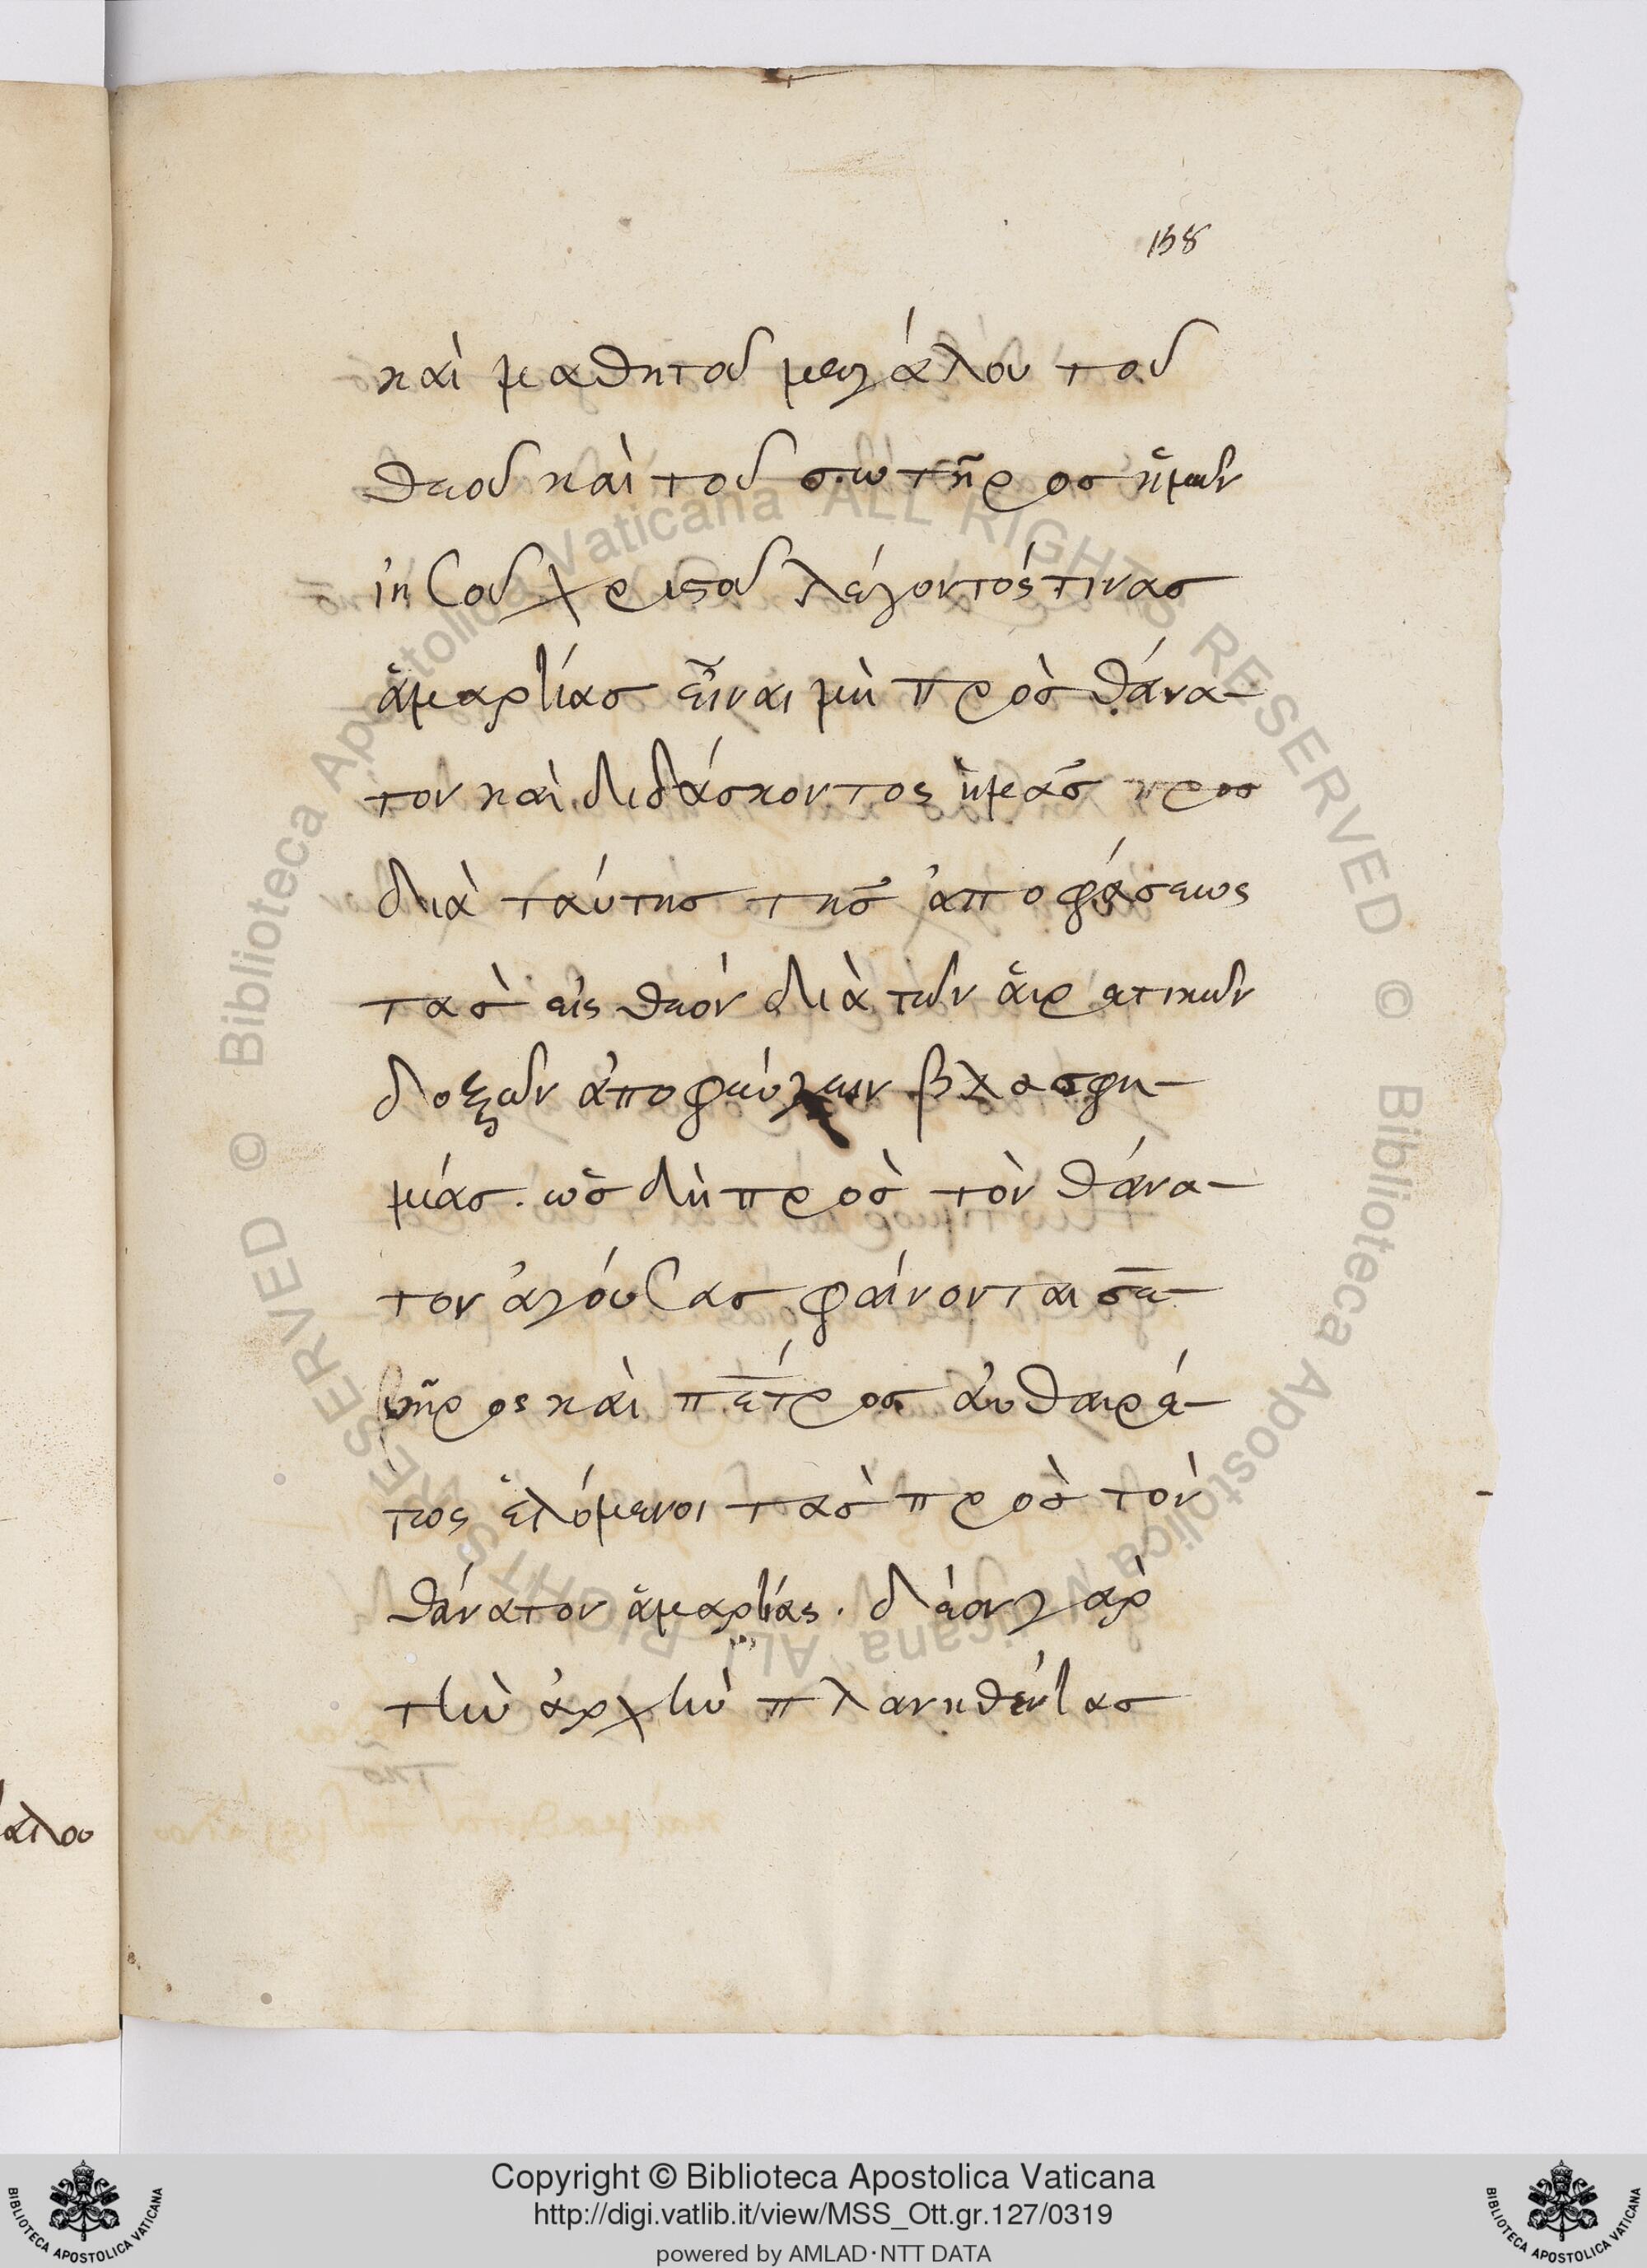 158
καὶ μαθητοῦ μεγάλου τοῦ
θεοῦ καὶ τοῦ σωτῆρος ἡμῶν
ἰησοῦ χριστοῦ λέγοντός τινας
ἁμαρτίας εἶναι μὴ πρὸς θάνα-
τον καὶ διδάσκοντος ἡμᾶς προσ
διὰ ταύτης τῆς ἀποφάσεως
τὰς εἰς θεὸν διὰ τῶν αἱρετικῶν
δοξῶν ἀποφεύγειν βλασφη-
μίας. ὡς δὴ πρὸς τὸν θάνα-
τον ἀγούσας φαίνονται σε-
βῆρος καὶ πέτρος αὐθαιρέ-
τως ἑλόμενοι τὰς πρὸς τὸν
θάνατον ἁμαρτίας. δέον γὰρ
τὴν ἀρχὴν πλανηθέντας
άλου
Biblioteca Apostolica Vaticana ALL RIGHTS RESERVED ©
Biblioteca Apostolica Vaticana ALL RIGHTS RESERVED ©
Copyright © Biblioteca Apostolica Vaticana
http://digi.vatlib.it/view/MSS_Ott.gr.127/0319
powered by AMLAD·NTT DATA
BIBLIOTECA APOSTOLICA VATICANA
BIBLIOTECA APOSTOLICA VATICANA